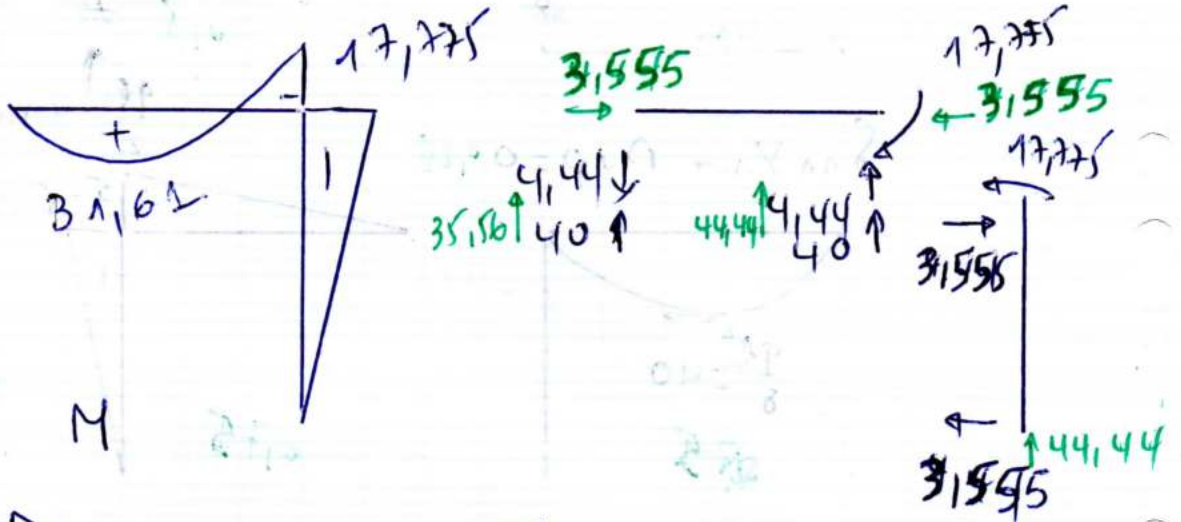 17,775
+
-
31,61
M
3,555
17,775
3,555
4,44
35,56 40
4,44
44,44 40
17,775
3,555
3,555
44,44